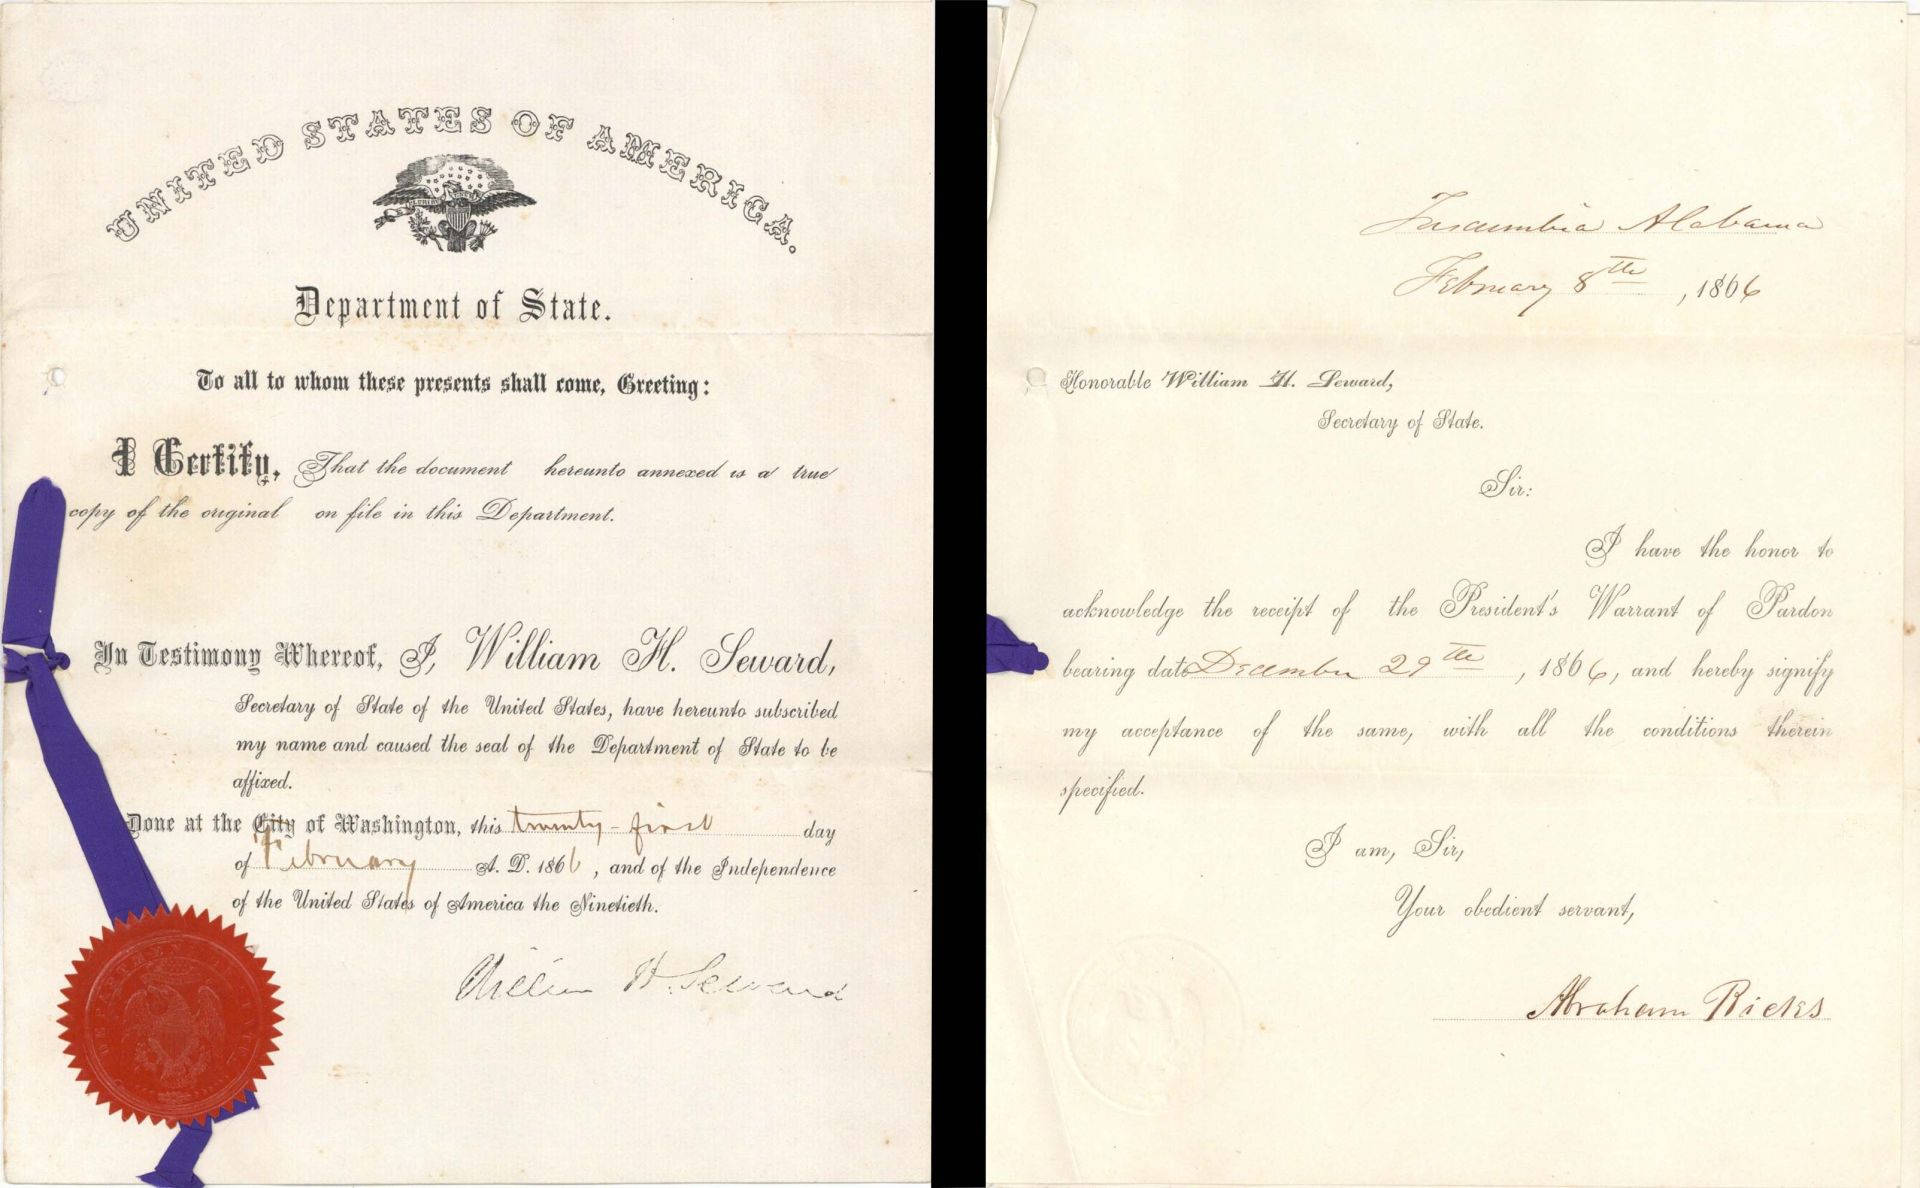 UNITED STATES OF AMERICA.
Department of State.
To all to whom these presents shall come, Greeting:
I Certify, That the document hereunto annexed is a true
copy of the original on file in this Department.
In Testimony Whereof, I, William H. Seward,
Secretary of State of the United States, have hereunto subscribed
my name and caused the seal of the Department of State to be
affixed.
Done at the City of Washington, this twenty-first day
of February A. D. 1866, and of the Independence
of the United States of America the Ninetieth.
William H. Seward
DEPARTMENT OF STATE
Tuscumbia Alabama
February 8th, 1866
Honorable William H. Seward,
Secretary of State.
Sir:
I have the honor to
acknowledge the receipt of the President's Warrant of Pardon
bearing date December 29th, 1866, and hereby signify
my acceptance of the same, with all the conditions therein
specified.
I am, Sir,
Your obedient servant,
Abraham Ricks